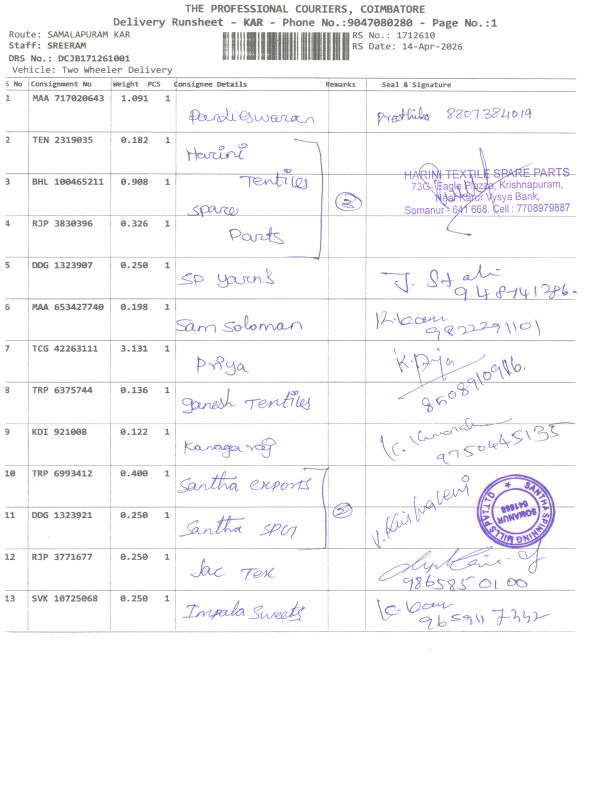 THE PROFESSIONAL COURIERS, COIMBATORE
Delivery Runsheet - KAR - Phone No.:9047080280 - Page No.:1
Route: SAMALAPURAM KAR RS No.: 1712610
Staff: SREERAM RS Date: 14-Apr-2026
DRS No.: DCJB171261001
Vehicle: Two Wheeler Delivery
S No Consignment No Weight PCS Consignee Details Remarks Seal & Signature
1 MAA 717020643 1.091 1 Pardieswaran Prathiba 8807384019
2 TEN 2319035 0.182 1 Harini
3 BHL 100465211 0.908 1 Tentiles
spare
4 RJP 3830396 0.326 1 Parts
HARINI TEXTILE SPARE PARTS
73G, Eagle Plazza, Krishnapuram,
Near Karur Vysya Bank,
Somanur - 641 668. Cell : 7708979887
5 DDG 1323907 0.250 1 SP yarns
6 MAA 653427740 0.198 1 Sam Soloman 9822291101
7 TCG 42263111 3.131 1 Priya K. Priya
8 TRP 6375744 0.136 1 ganesh Tentiles
9 KDI 921008 0.122 1 Kanagaraj 9750445135
10 TRP 6993412 0.400 1 Santha exports
11 DDG 1323921 0.250 1 Santha SPG 2
SANTHA SPINNING MILLS PVT.LTD
SOMANUR
641668
12 RJP 3771677 0.250 1 Jac Tex 98658501 00
13 SVK 10725068 0.250 1 Impala Sweets